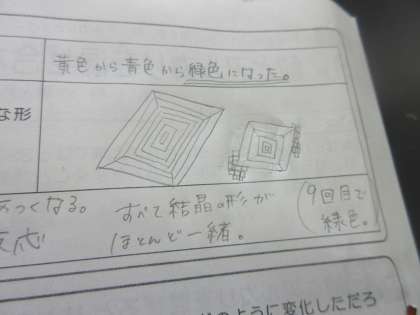 黄色から青色から緑色になった。
な形
あつくなる。
すべて結晶の形が
ほとんど一緒。
(9回目で
緑色。)
反応
のように変化しただろ